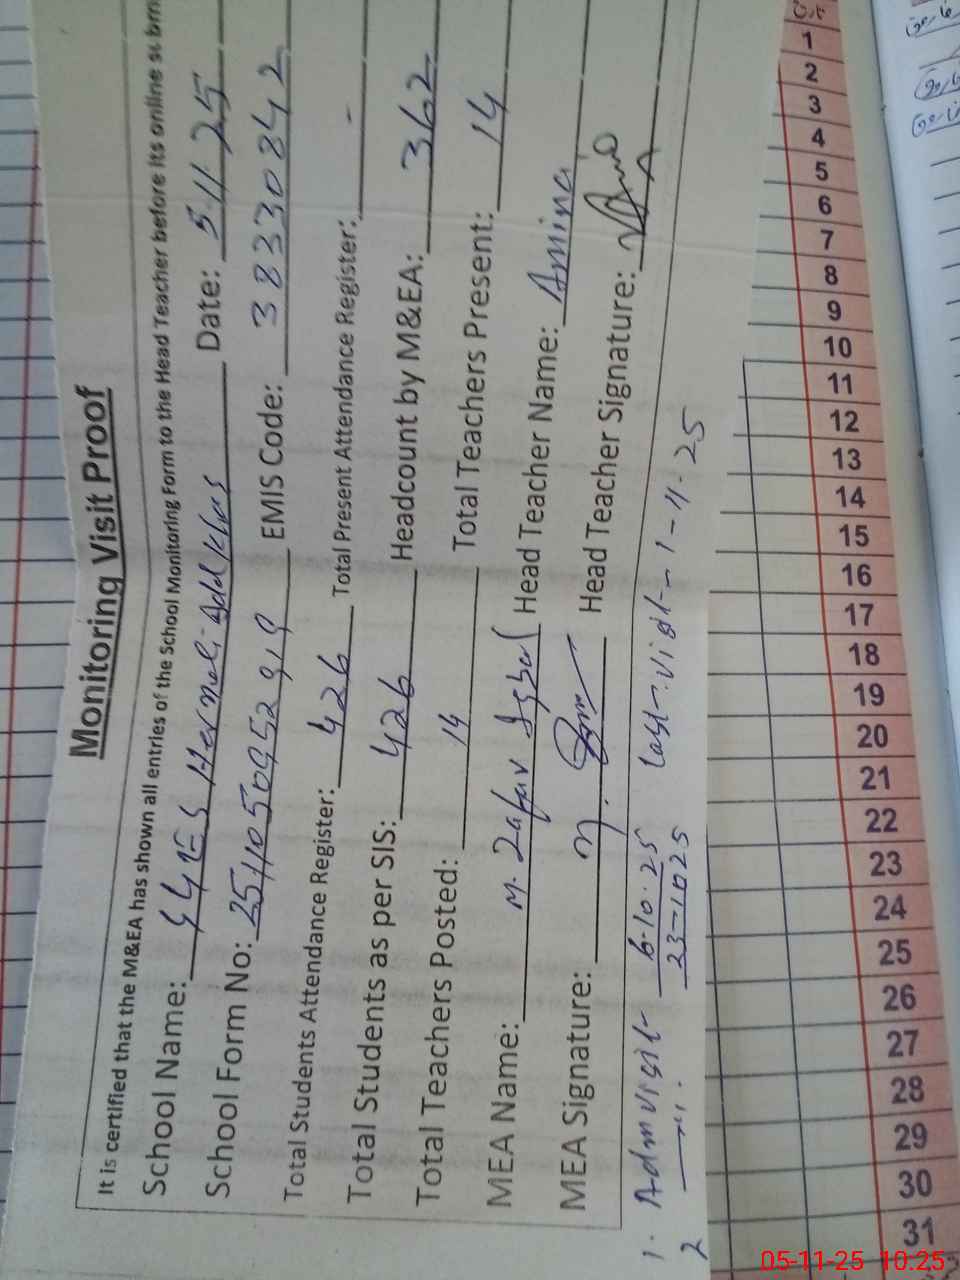 Monitoring Visit Proof
It is certified that the M&EA has shown all entries of the School Monitoring Form to the Head Teacher before its online
School Name: Date: 5.11.25
School Form No: EMIS Code: 38330842
Total Students Attendance Register: 426 Total Present Attendance Register: -
Total Students as per SIS: 426 Headcount by M&EA: 362
Total Teachers Posted: 14 Total Teachers Present: 14
MEA Name: M. Zafar Iqbal Head Teacher Name: Amina
MEA Signature: Head Teacher Signature:
1. Adm visit- 6.10.25 last-visit- 1-11-25
2 23-1025
1
2
3
4
5
6
7
8
9
10
11
12
13
14
15
16
17
18
19
20
21
22
23
24
25
26
27
28
29
30
31
05-11-25 10:25